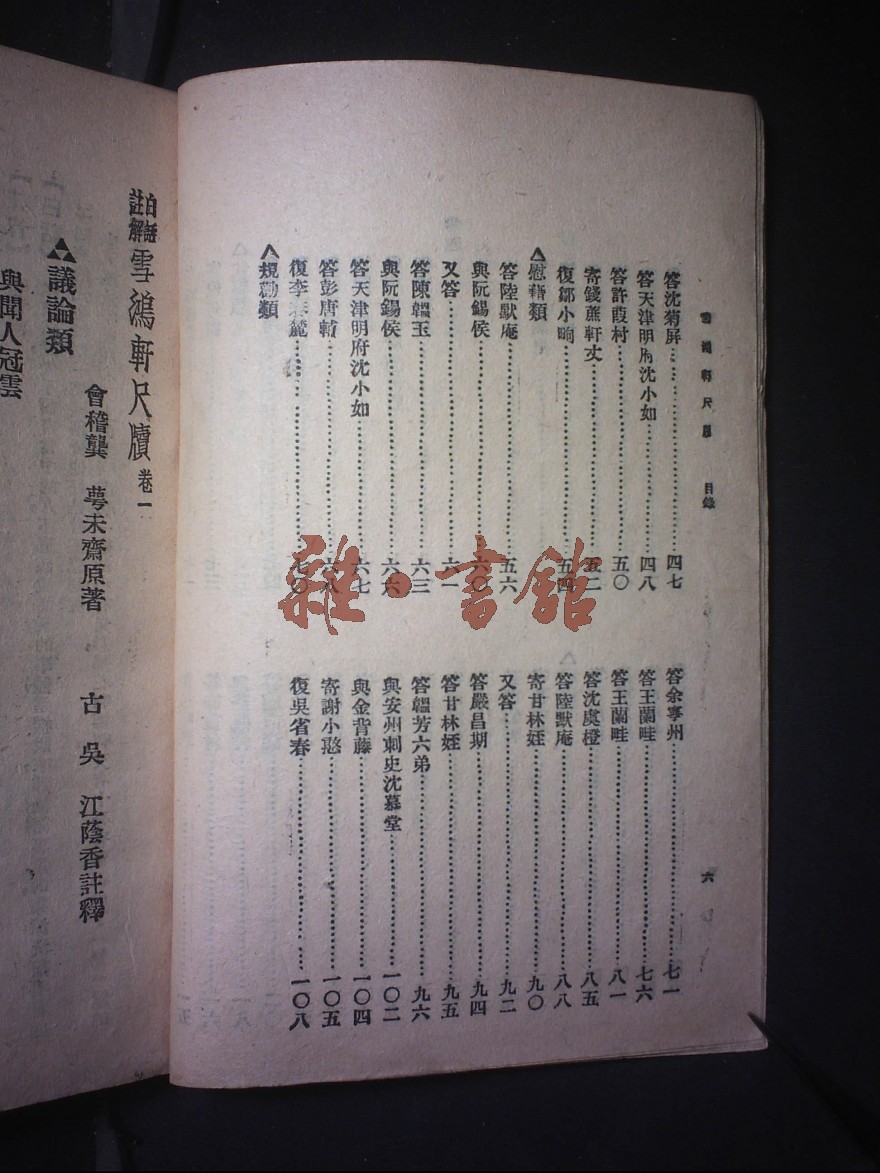 雪鴻軒尺牘 目錄
六
答沈菊屏 四七
答天津明府沈小如 四八
答許葭村 五〇
寄錢蔗軒丈 五二
復鄒小晌 五四
△慰藉類
答陸默庵 五六
與阮錫侯 六〇
又答 六一
答陳韞玉 六三
與阮錫侯 六六
答天津明府沈小如 六七
答彭唐 六八
復李春麓 七〇
△規勸類
答余寧州 七一
答王蘭畦 七六
答王蘭畦 八一
答沈虞橙 八五
答陸默庵 八八
寄甘林姪 九〇
又答 九二
答嚴昌期 九四
答甘林姪 九五
答韞芳六弟 九六
與安州刺史沈慕堂 一〇二
與金背藤 一〇四
寄謝小憨 一〇五
復吳省春 一〇八
雜·書館
白話註解 雪鴻軒尺牘 卷一
會稽龔 萼未齋原著 古吳 江蔭香註釋
議論類
與聞人冠雲